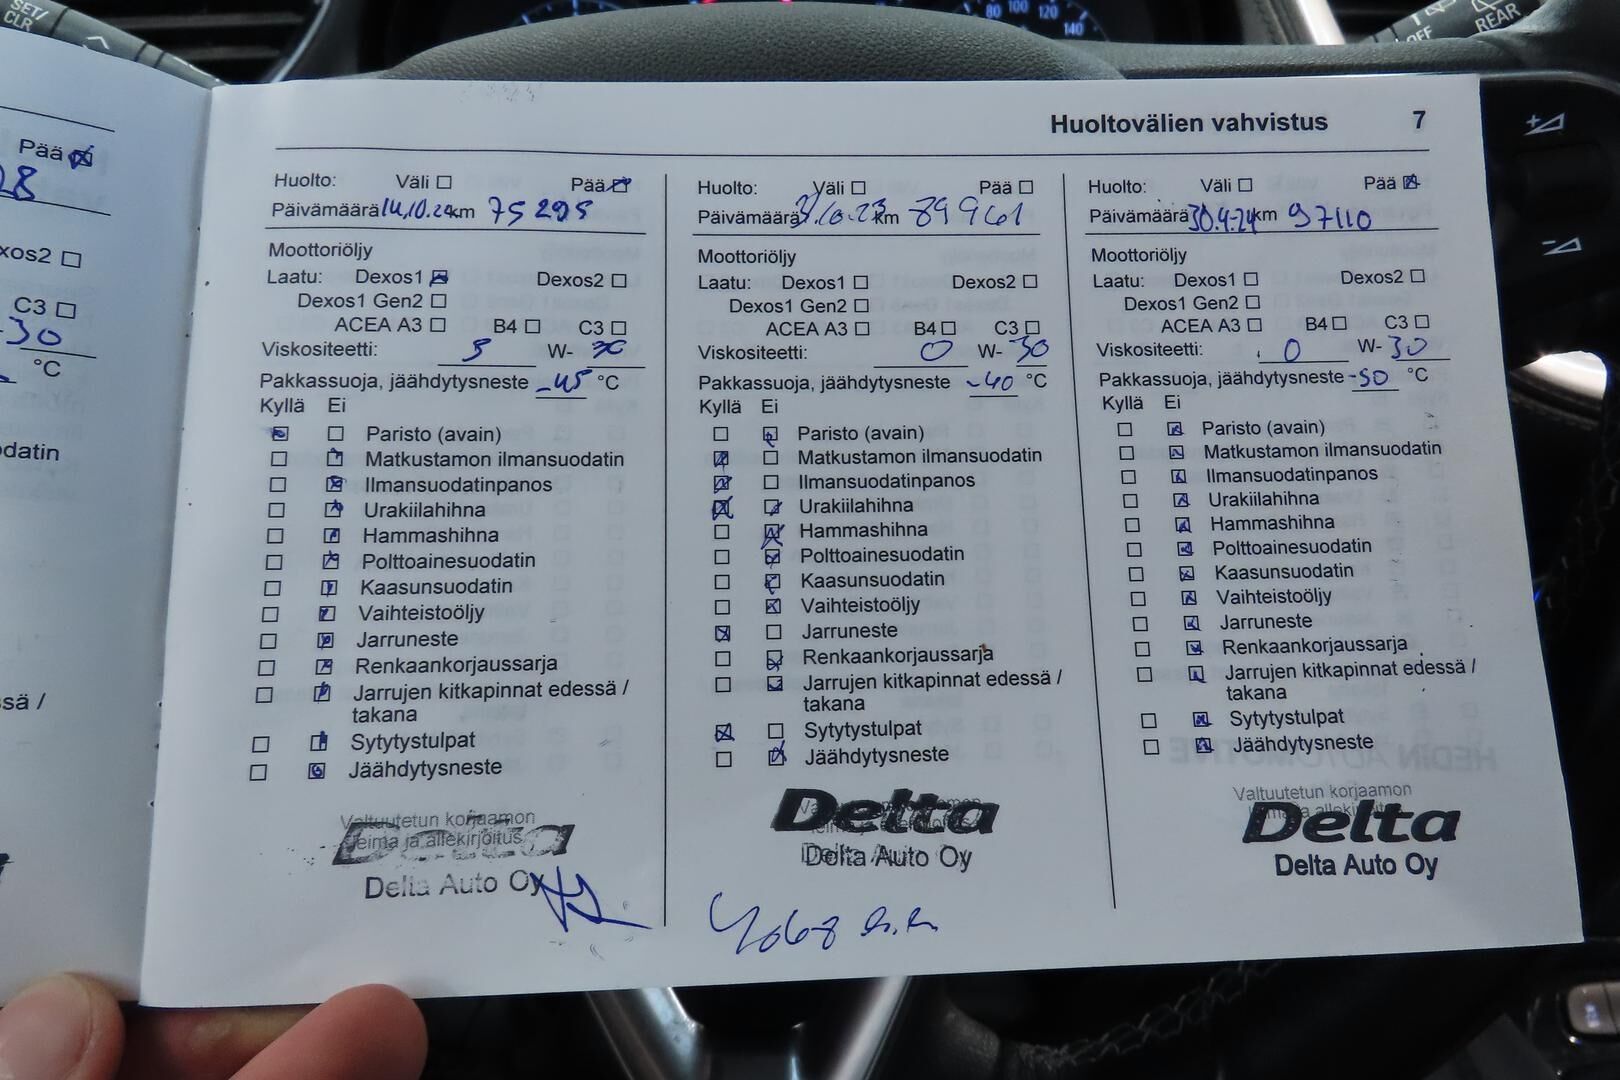 SET/
CLR
80 100 120
140
OFF
REAR
Pää
28
xos2
C3
-30
°C
datin
sä /
Huoltovälien vahvistus 7
Huolto: Väli Pää
Päivämäärä 14.10.22 km 75295
Moottoriöljy
Laatu: Dexos1 Dexos2
Dexos1 Gen2
ACEA A3 B4 C3
Viskositeetti: 5 W- 30
Pakkassuoja, jäähdytysneste -45 °C
Kyllä Ei
Paristo (avain)
Matkustamon ilmansuodatin
Ilmansuodatinpanos
Urakiilahihna
Hammashihna
Polttoainesuodatin
Kaasunsuodatin
Vaihteistoöljy
Jarruneste
Renkaankorjaussarja
Jarrujen kitkapinnat edessä /
takana
Sytytystulpat
Jäähdytysneste
Valtuutetun korjaamon
leima ja allekirjoitus
Delta
Delta Auto Oy
Huolto: Väli Pää
Päivämäärä 3.10.23 km 89961
Moottoriöljy
Laatu: Dexos1 Dexos2
Dexos1 Gen2
ACEA A3 B4 C3
Viskositeetti: 0 W- 30
Pakkassuoja, jäähdytysneste -40 °C
Kyllä Ei
Paristo (avain)
Matkustamon ilmansuodatin
Ilmansuodatinpanos
Urakiilahihna
Hammashihna
Polttoainesuodatin
Kaasunsuodatin
Vaihteistoöljy
Jarruneste
Renkaankorjaussarja
Jarrujen kitkapinnat edessä /
takana
Sytytystulpat
Jäähdytysneste
Delta
Delta Auto Oy
Huolto: Väli Pää
Päivämäärä 30.4.24 km 97110
Moottoriöljy
Laatu: Dexos1 Dexos2
Dexos1 Gen2
ACEA A3 B4 C3
Viskositeetti: 0 W- 30
Pakkassuoja, jäähdytysneste -50 °C
Kyllä Ei
Paristo (avain)
Matkustamon ilmansuodatin
Ilmansuodatinpanos
Urakiilahihna
Hammashihna
Polttoainesuodatin
Kaasunsuodatin
Vaihteistoöljy
Jarruneste
Renkaankorjaussarja
Jarrujen kitkapinnat edessä /
takana
Sytytystulpat
Jäähdytysneste
Valtuutetun korjaamon
Delta
Delta Auto Oy